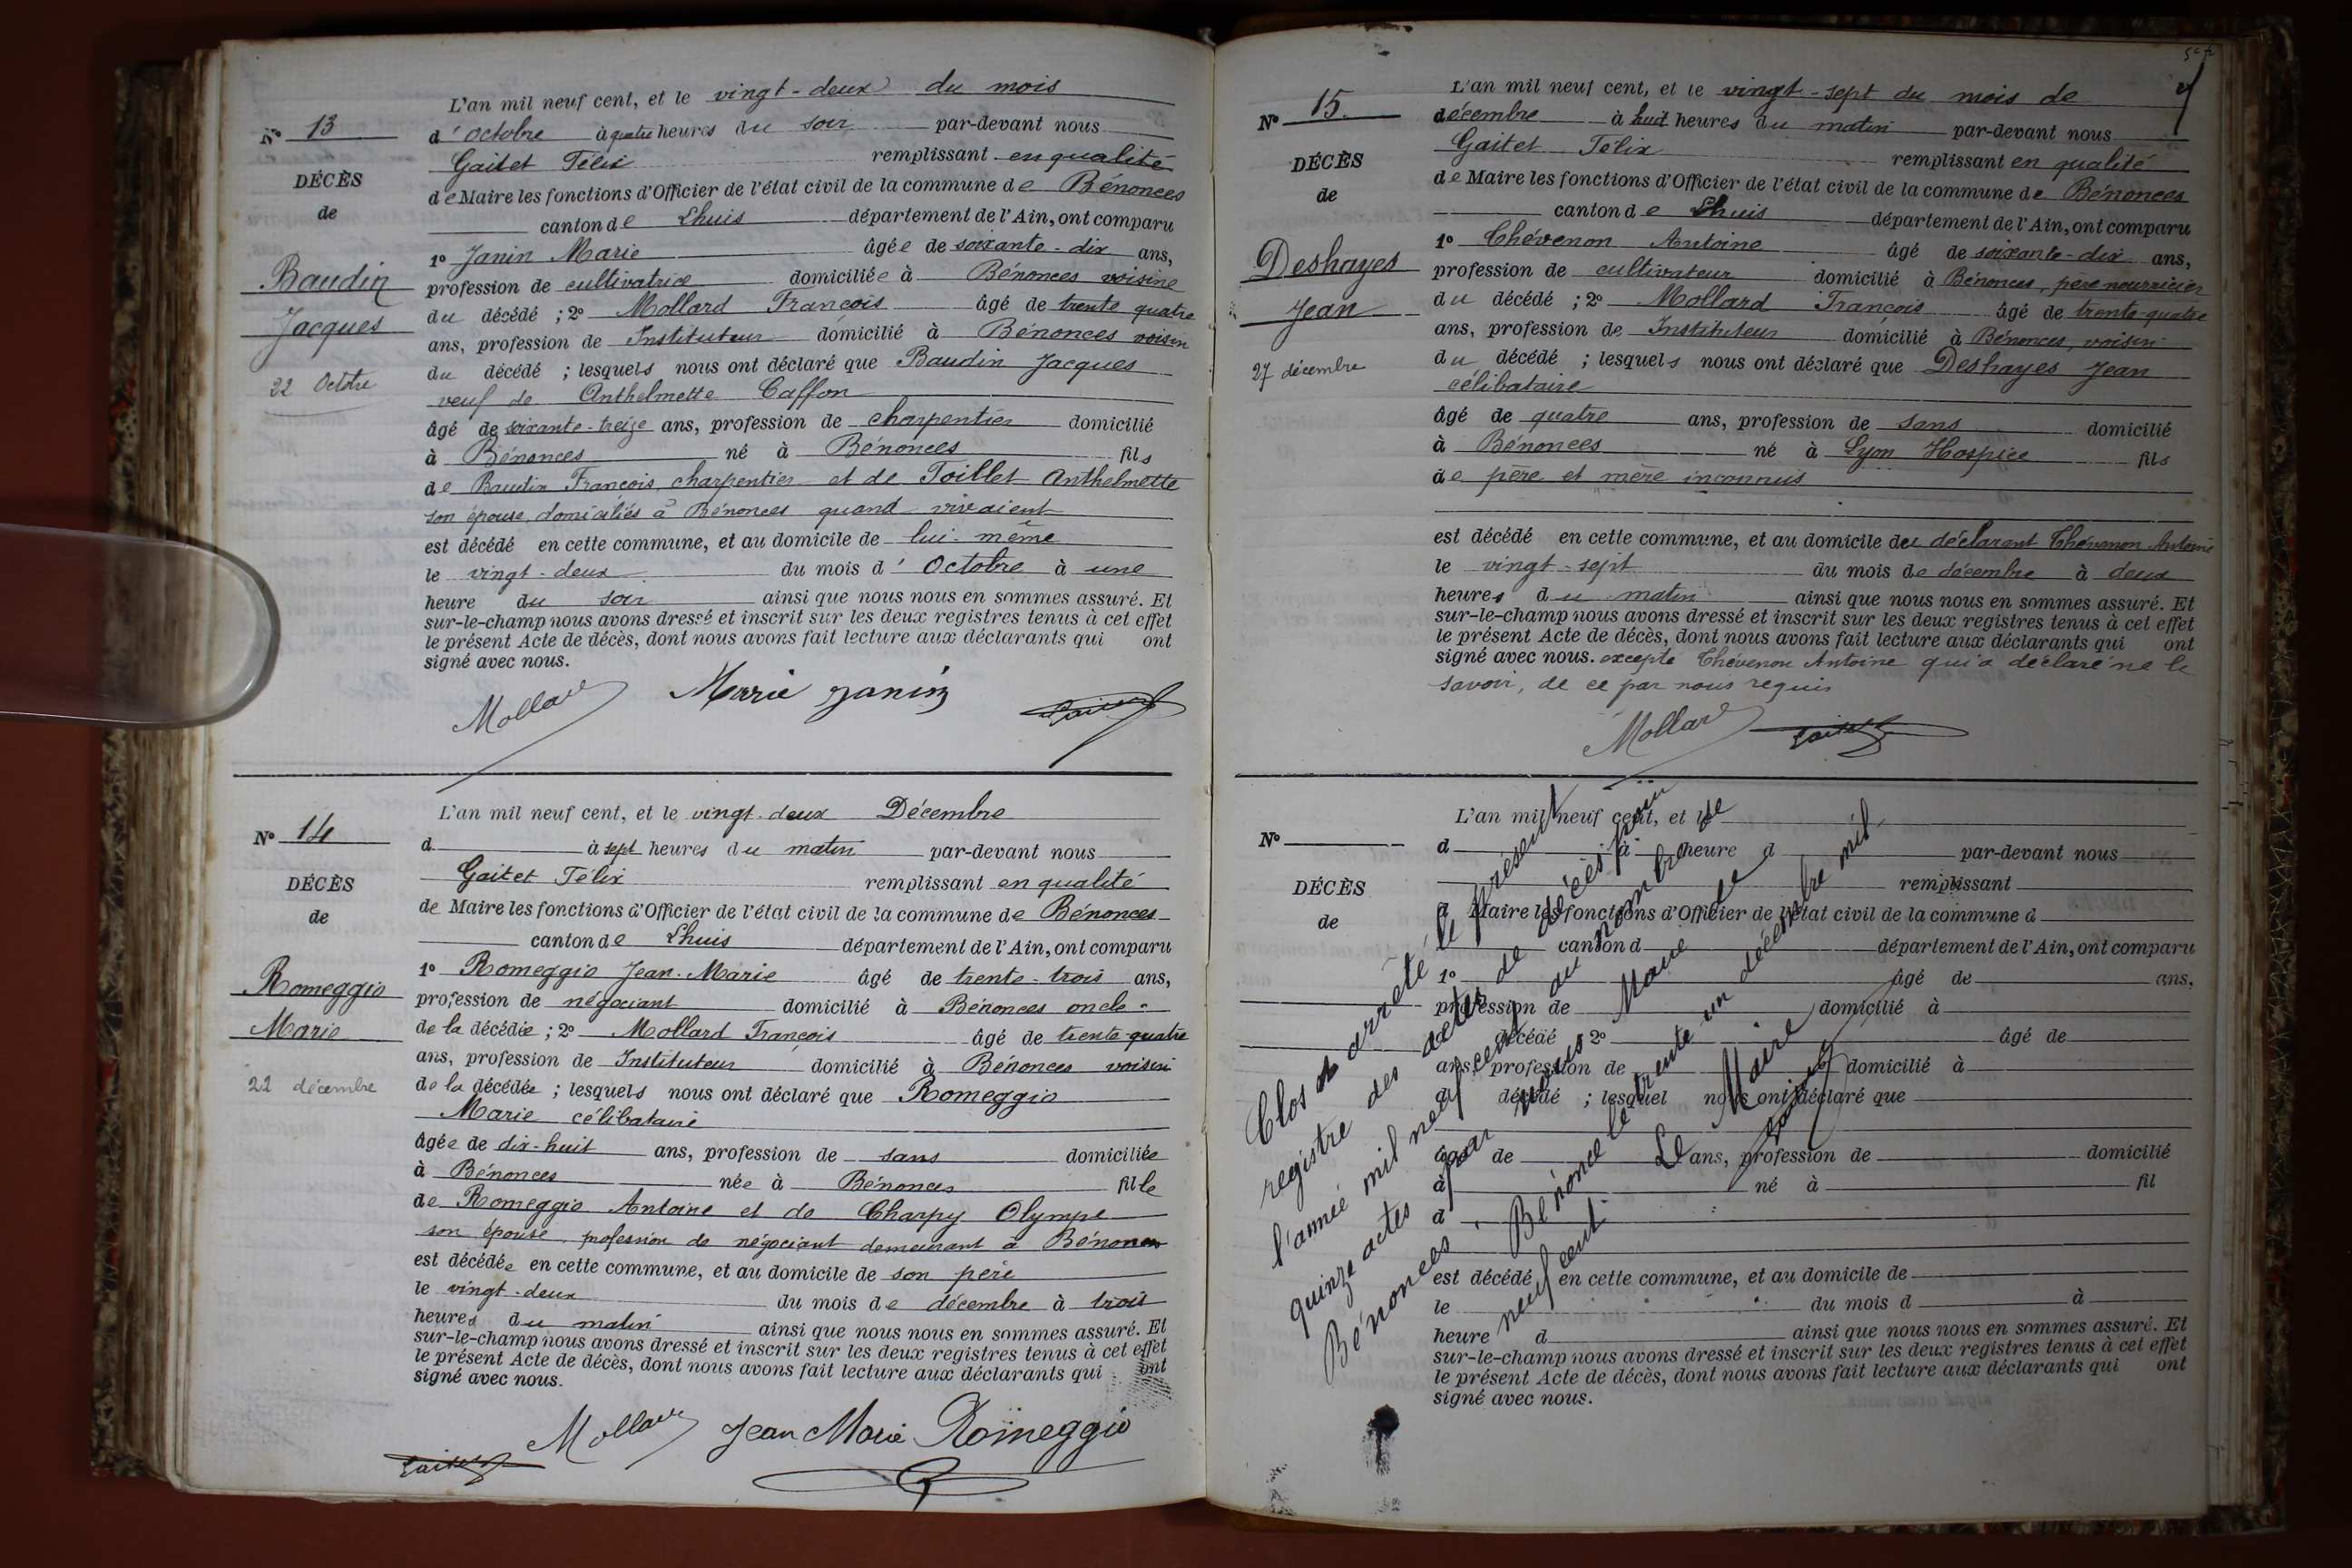 L'an mil neuf cent, et le vingt-deux du mois
N° 13
d'octobre à quatre heures du soir par-devant nous
Gaitet Félix remplissant en qualité
DÉCÈS
de Maire les fonctions d'Officier de l'état civil de la commune de Bénonces
de
canton de Lhuis département de l'Ain, ont comparu
1° Janin Marie âgée de soixante-dix ans,
Baudin
profession de cultivatrice domiciliée à Bénonces voisine
Jacques
du décédé ; 2° Mollard François âgé de trente quatre
ans, profession de Instituteur domicilié à Bénonces voisin
22 Octobre
du décédé ; lesquels nous ont déclaré que Baudin Jacques
veuf de Anthelmette Caffon
âgé de soixante-treize ans, profession de charpentier domicilié
à Bénonces né à Bénonces fils
de Baudin François, charpentier et de Toillet Anthelmette
son épouse, domiciliés à Bénonces quand vivaient
est décédé en cette commune, et au domicile de lui-même
le vingt-deux du mois d'Octobre à une
heure du soir ainsi que nous nous en sommes assuré. Et
sur-le-champ nous avons dressé et inscrit sur les deux registres tenus à cet effet
le présent Acte de décès, dont nous avons fait lecture aux déclarants qui ont
signé avec nous.
Mollard Marie Janin Gaitet
L'an mil neuf cent, et le vingt-deux Décembre
N° 14
d à sept heures du matin par-devant nous
Gaitet Félix remplissant en qualité
DÉCÈS
de Maire les fonctions d'Officier de l'état civil de la commune de Bénonces
de
canton de Lhuis département de l'Ain, ont comparu
1° Romeggio Jean-Marie âgé de trente-trois ans,
Romeggio
profession de négociant domicilié à Bénonces oncle
Marie
de la décédée ; 2° Mollard François âgé de trente-quatre
ans, profession de Instituteur domicilié à Bénonces voisin
22 décembre
de la décédée ; lesquels nous ont déclaré que Romeggio
Marie célibataire
âgée de dix-huit ans, profession de sans domiciliée
à Bénonces née à Bénonces fille
de Romeggio Antoine et de Charpy Olympe
son épouse, profession de négociant demeurant à Bénonces
est décédée en cette commune, et au domicile de son père
le vingt-deux du mois de décembre à trois
heures du matin ainsi que nous nous en sommes assuré. Et
sur-le-champ nous avons dressé et inscrit sur les deux registres tenus à cet effet
le présent Acte de décès, dont nous avons fait lecture aux déclarants qui ont
signé avec nous.
Gaitet Mollard Jean Marie Romeggio
L'an mil neuf cent, et le vingt-sept du mois de
N° 15
décembre à huit heures du matin par-devant nous
Gaitet Félix remplissant en qualité
DÉCÈS
de Maire les fonctions d'Officier de l'état civil de la commune de Bénonces
de
canton de Lhuis département de l'Ain, ont comparu
1° Thévenon Antoine âgé de soixante-dix ans,
Deshayes
profession de cultivateur domicilié à Bénonces, père nourricier
Jean
du décédé ; 2° Mollard François âgé de trente-quatre
ans, profession de Instituteur domicilié à Bénonces, voisin
27 décembre
du décédé ; lesquels nous ont déclaré que Deshayes Jean
célibataire
âgé de quatre ans, profession de sans domicilié
à Bénonces né à Lyon Hospice fils
de père et mère inconnus
est décédé en cette commune, et au domicile du déclarant Thévenon Antoine
le vingt-sept du mois de décembre à deux
heures du matin ainsi que nous nous en sommes assuré. Et
sur-le-champ nous avons dressé et inscrit sur les deux registres tenus à cet effet
le présent Acte de décès, dont nous avons fait lecture aux déclarants qui ont
signé avec nous. excepté Thévenon Antoine qui a déclaré ne le
savoir, de ce par nous requis
Mollard Gaitet
L'an mil neuf cent, et le
N°
d à heure d par-devant nous
remplissant
DÉCÈS
d Maire les fonctions d'Officier de l'état civil de la commune d
de
canton d département de l'Ain, ont comparu
1° âgé de ans,
profession de domicilié à
d décédé 2° âgé de
ans, profession de domicilié à
d décédé ; lesquel nous ont déclaré que
âgé de ans, profession de domicilié
à né à fil
d
est décédé en cette commune, et au domicile de
le du mois d à
heure d ainsi que nous nous en sommes assuré. Et
sur-le-champ nous avons dressé et inscrit sur les deux registres tenus à cet effet
le présent Acte de décès, dont nous avons fait lecture aux déclarants qui ont
signé avec nous.
Clos et arrêté le présent
registre des actes de décès pour
l'année mil neuf cent au nombre de
quinze actes par nous Maire de
Bénonces. Bénonce le trente un décembre mil
neuf cent. Le Maire
Gaitet